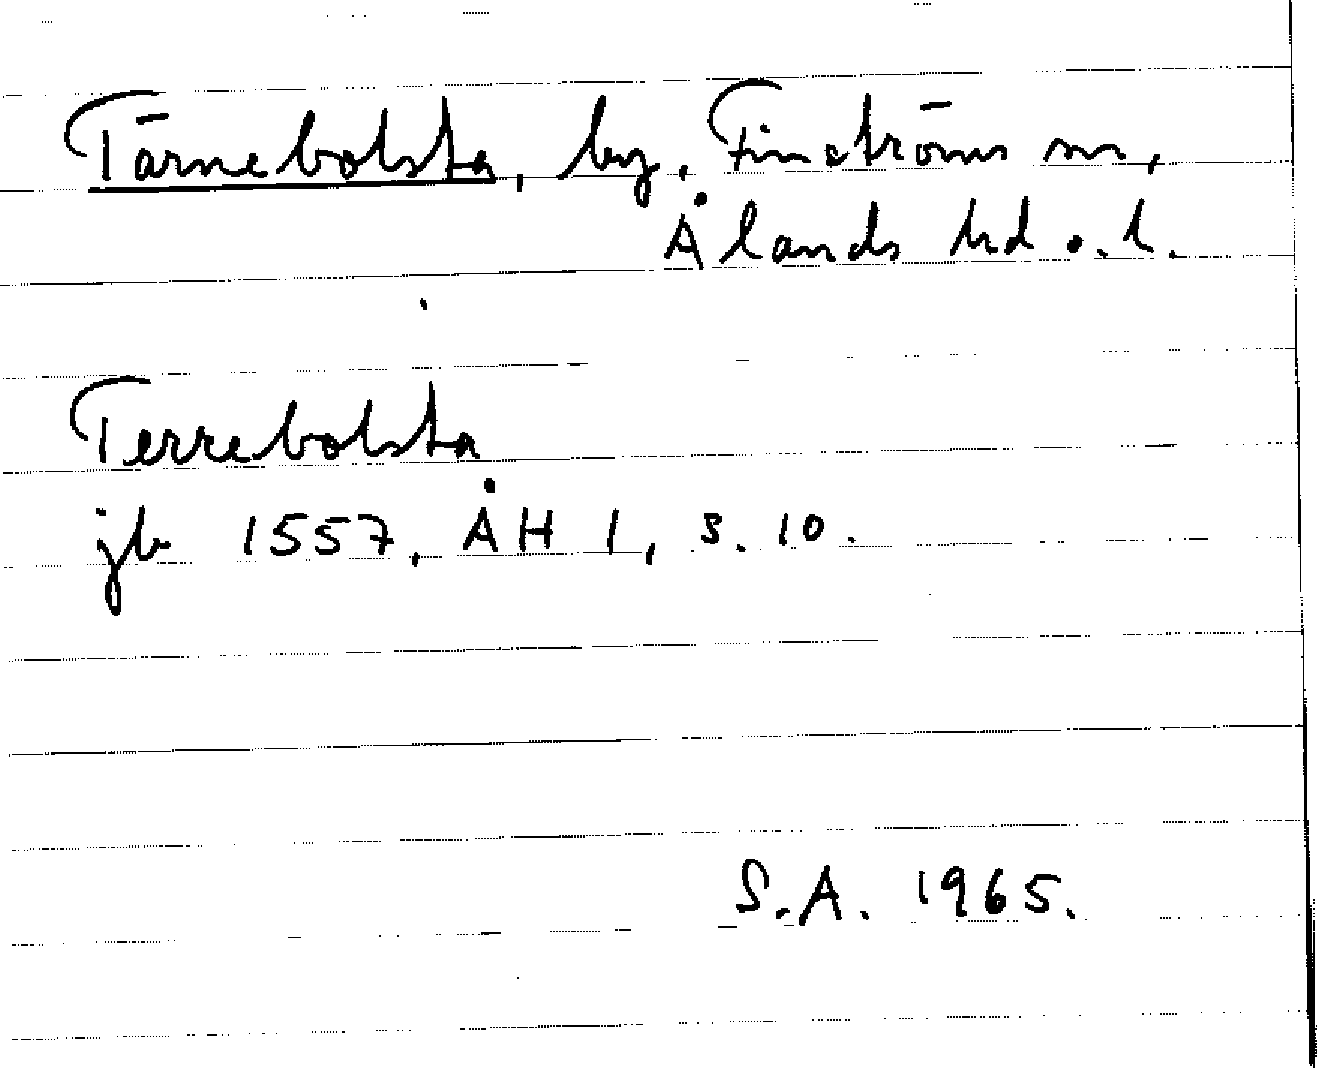 Tärnebolsta, by, Finströms sn,
Ålands hd o. l.
Terrebolsta
jb 1557, ÅH 1, s. 10.
S.A. 1965.